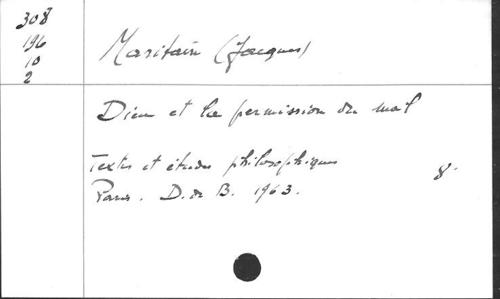 308
196
10
2
Maritain (Jacques)
Dieu et la permission du mal
Textes et études philosophiques
Paris. D. de B. 1963.
8°